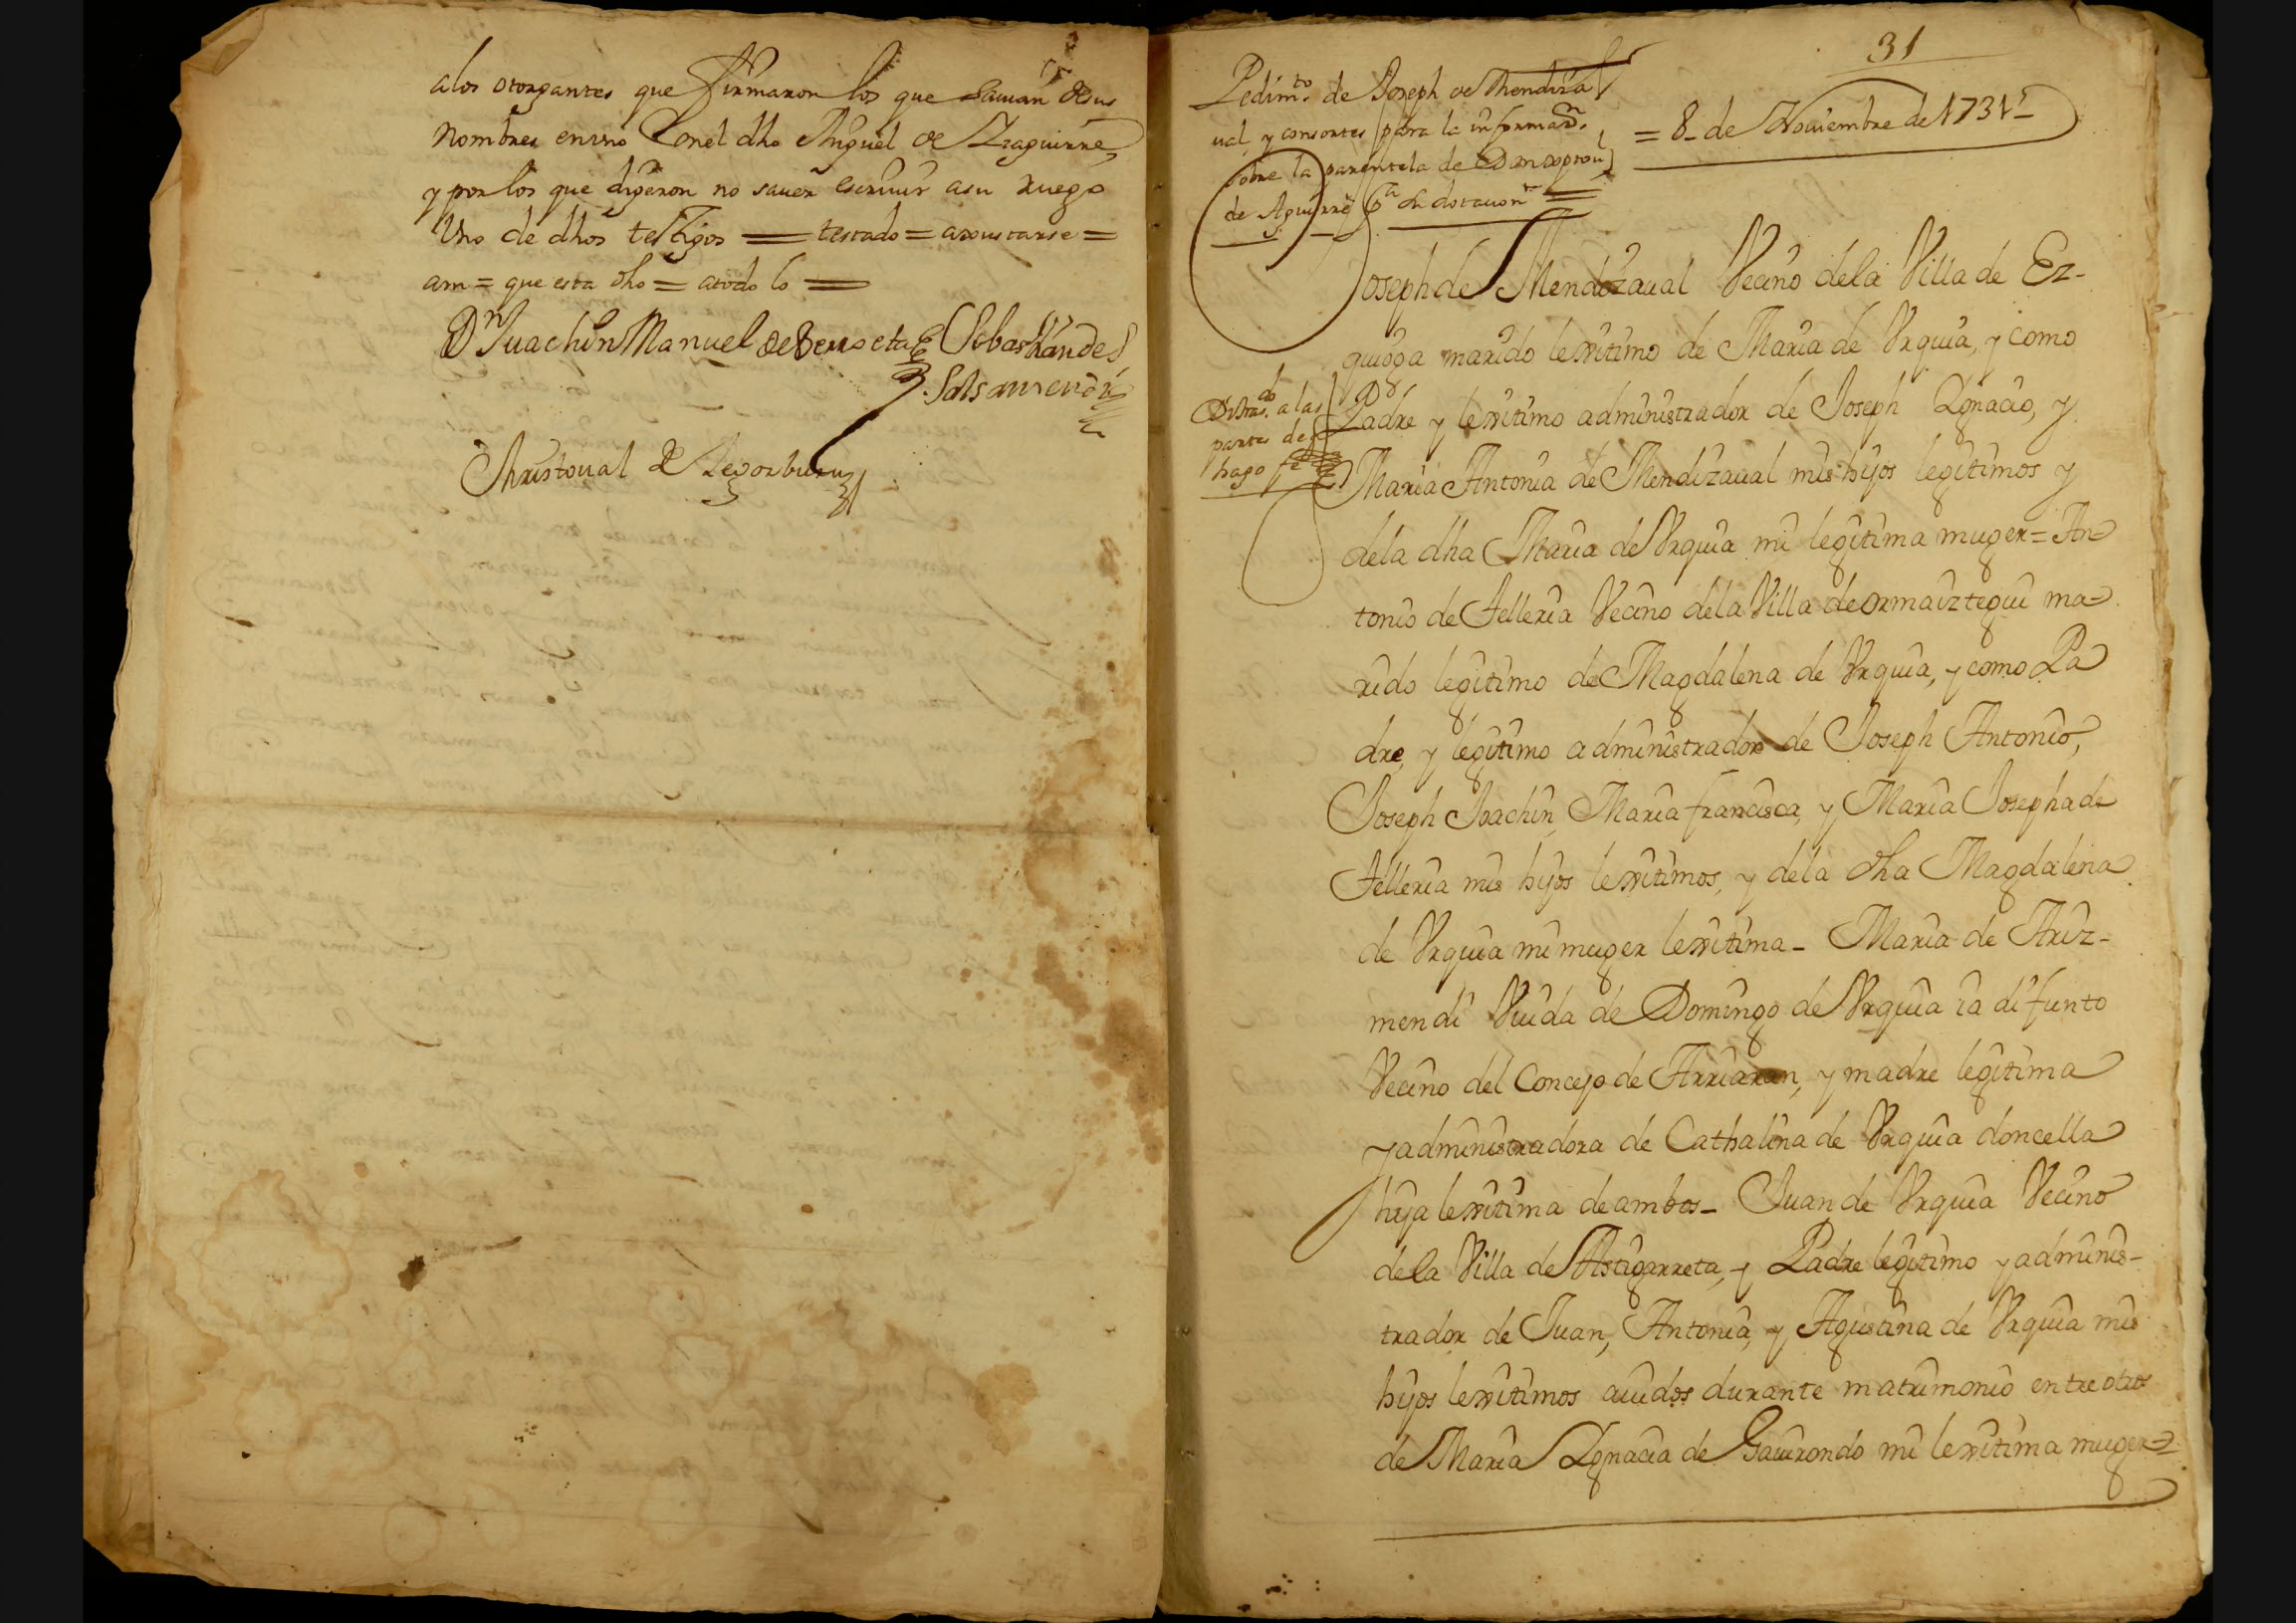 alos otorgantes que firmaron los que sauian desus
nombres en vno Con el dho Miguel de Yzaguirre,
y por los que digeron no sauer escriuir asu ruego
Vno de dhos testigos = testado = axoustarse =
am = que esta dho = atodo lo =
Dn Juachin Manuel de Berroeta Sebastian de
Salsamendi
Christoual de Legorburu
31
Pedimto. de Joseph de Mendiza
ual y consortes para la informaon.
sobre la parentela de Dn
de Aguirre pa su dotacion =
= 8 de Nouiembre de 1731 =
Joseph de Mendizaual Vecino dela Villa de Ez-
quioga marido lexitimo de Maria de Vrquia, y como
Padre y lexitimo administrador de Joseph Ygnacio, y
Maria Antonia de Mendizaual mis hijos legitimos y
dela dha Maria de Vrquia mi legitima muger = An-
tonio de Telleria Vecino dela Villa de Ormaiztegui ma-
rido legitimo de Magdalena de Vrquia, y como Pa
dre, y legitimo administrador de Joseph Antonio,
Joseph Joachin, Maria francisca, y Maria Josepha de
Telleria mis hijos lexitimos, y dela dha Magdalena
de Vrquia mi muger lexitima - Maria de Ariz-
mendi Viuda de Domingo de Vrquia ia difunto
Vecino del Concejo de Arriaran, y madre legitima
y administradora de Cathalina de Vrquia doncella
hija lexitima de ambos - Juan de Vrquia Vecino
dela Villa de Astigarreta, y Padre legitimo y adminis-
trador de Juan, Antonia, y Agustina de Vrquia mis
hijos lexitimos auidos durante matrimonio entre otros
de Maria Ygnacia de Gauirondo mi lexitima muger =
a las
partes de
hago fe